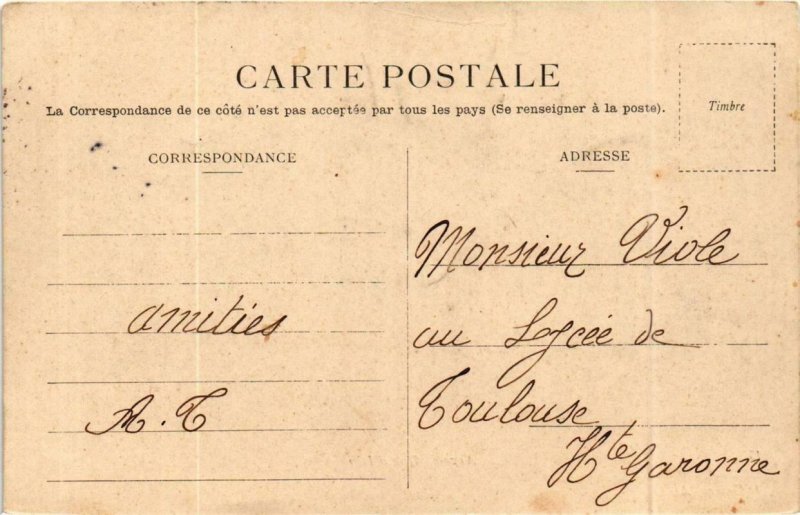 CARTE POSTALE
La Correspondance de ce côté n'est pas acceptée par tous les pays (Se renseigner à la poste).
Timbre
CORRESPONDANCE
amitiés
A. T
ADRESSE
Monsieur Viole
au Lycée de
Toulouse
Hte Garonne